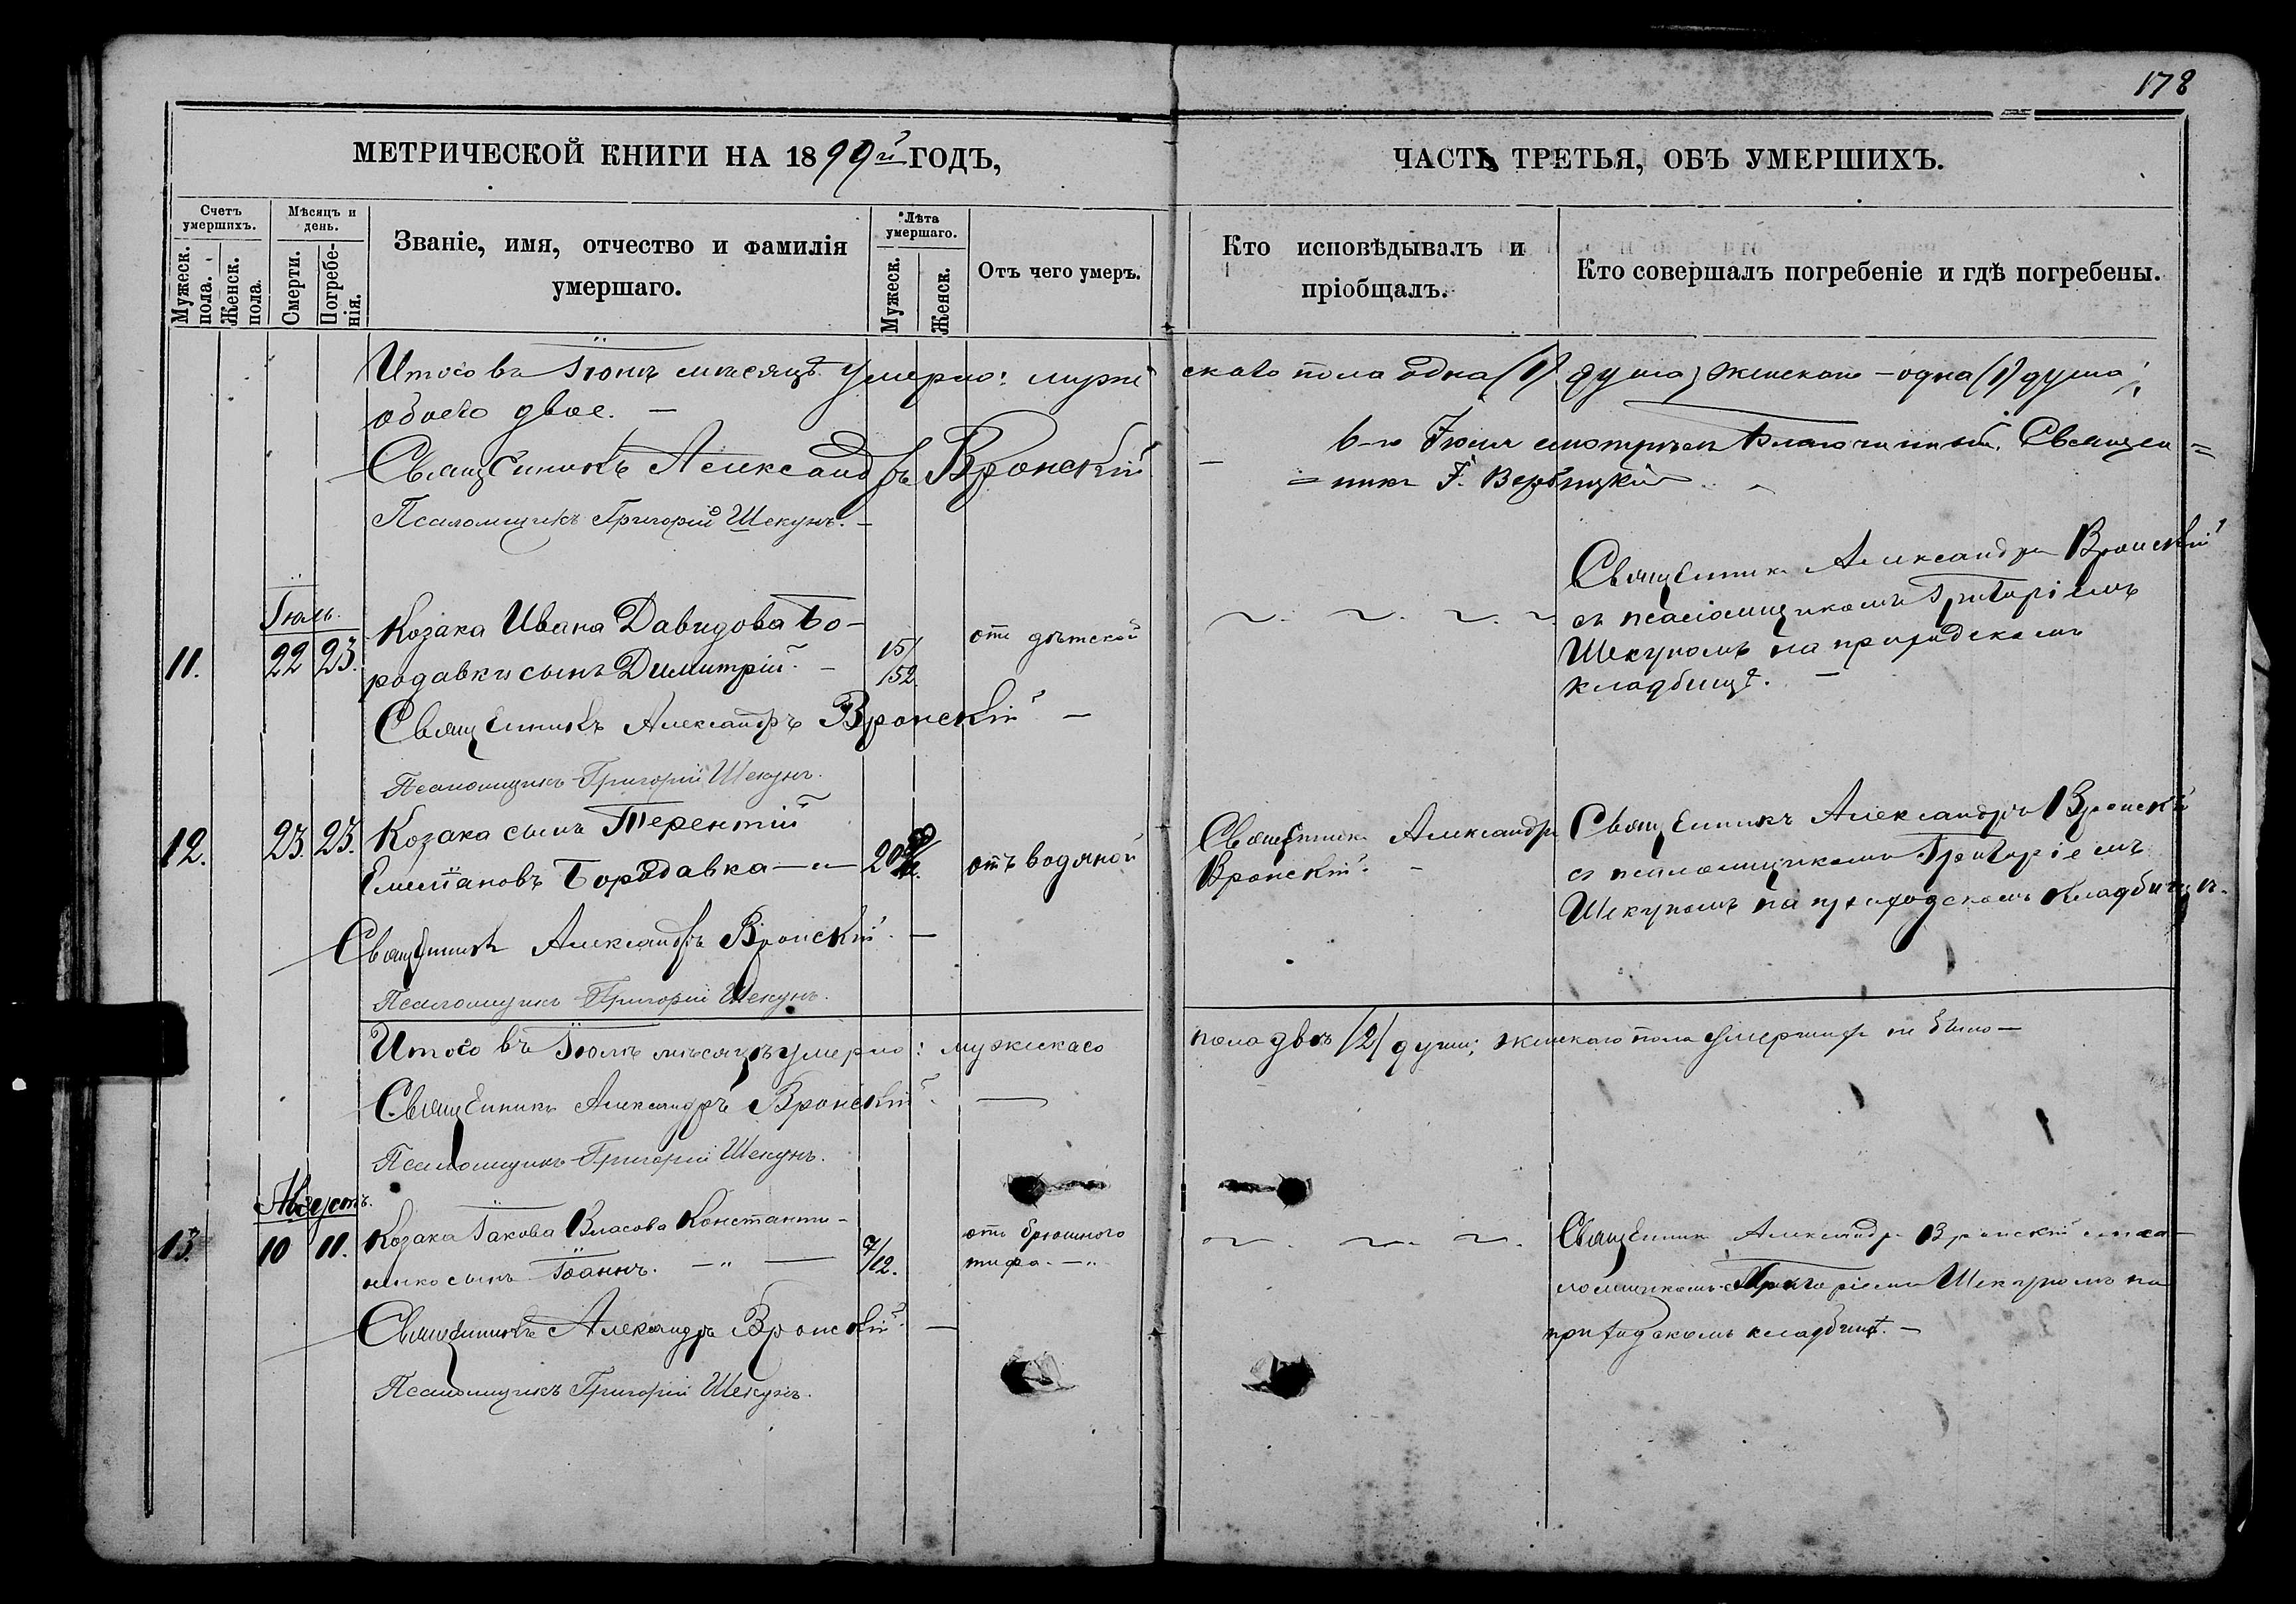 178
МЕТРИЧЕСКОЙ КНИГИ НА 1899й ГОДЪ,
ЧАСТЬ ТРЕТЬЯ, ОБЪ УМЕРШИХЪ.
Счетъ умершихъ.
Мужеск. пола.
Женск. пола.
Мѣсяцъ и день.
Смерти.
Погребенія.
Званіе, имя, отчество и фамилія
умершаго.
Лѣта умершаго.
Мужеск.
Женск.
Отъ чего умеръ.
Кто исповѣдывалъ и
пріобщалъ.
Кто совершалъ погребеніе и гдѣ погребены.
Итого въ Іюнѣ мѣсяцѣ умерло: мужескаго пола одна (1) душа, женскаго – одна (1) душа,
обоего двое. —
Священникъ Александръ Вронскій
Псаломщикъ Григорій Шекунъ. —
6-го Іюля смотрѣлъ Благочинный, Священ=
=никъ Вербицкій
Іюль.
11.
22 23.
Козака Ивана Давидова Бо-
родавки сынъ Димитрій. —
15/
152.
отъ дѣтской
Священникъ Александръ Вронскій
съ псаломщикомъ Григоріемъ
Шекуномъ на приходскомъ
кладбищѣ. —
Священникъ Александръ Вронскій —
Псаломщикъ Григорій Шекунъ.
12.
23. 25.
Козака сынъ Терентій
Бородавка — „ —
20
отъ водяной
Священникъ Александръ
Вронскій. —
Священникъ Александръ Вронскій
съ псаломщикомъ Григоріемъ
Шекуномъ на приходскомъ кладбищѣ.
Священникъ Александръ Вронскій. —
Псаломщикъ Григорій Шекунъ.
Итого въ Іюлѣ мѣсяцѣ умерло: мужескаго пола двѣ /2/ души; женскаго пола умершихъ не было —
Священникъ Александръ Вронскій. —
Псаломщикъ Григорій Шекунъ.
Августъ.
13.
10 11.
Козака Іакова Власова Константи-
ненко сынъ Іоаннъ. — „ —
7/12.
отъ брюшного
тифа. — „
Священникъ Александръ Вронскій съ пса-
ломщикомъ Григоріемъ Шекуномъ на
приходскомъ кладбищѣ. —
Священникъ Александръ Вронскій. —
Псаломщикъ Григорій Шекунъ.